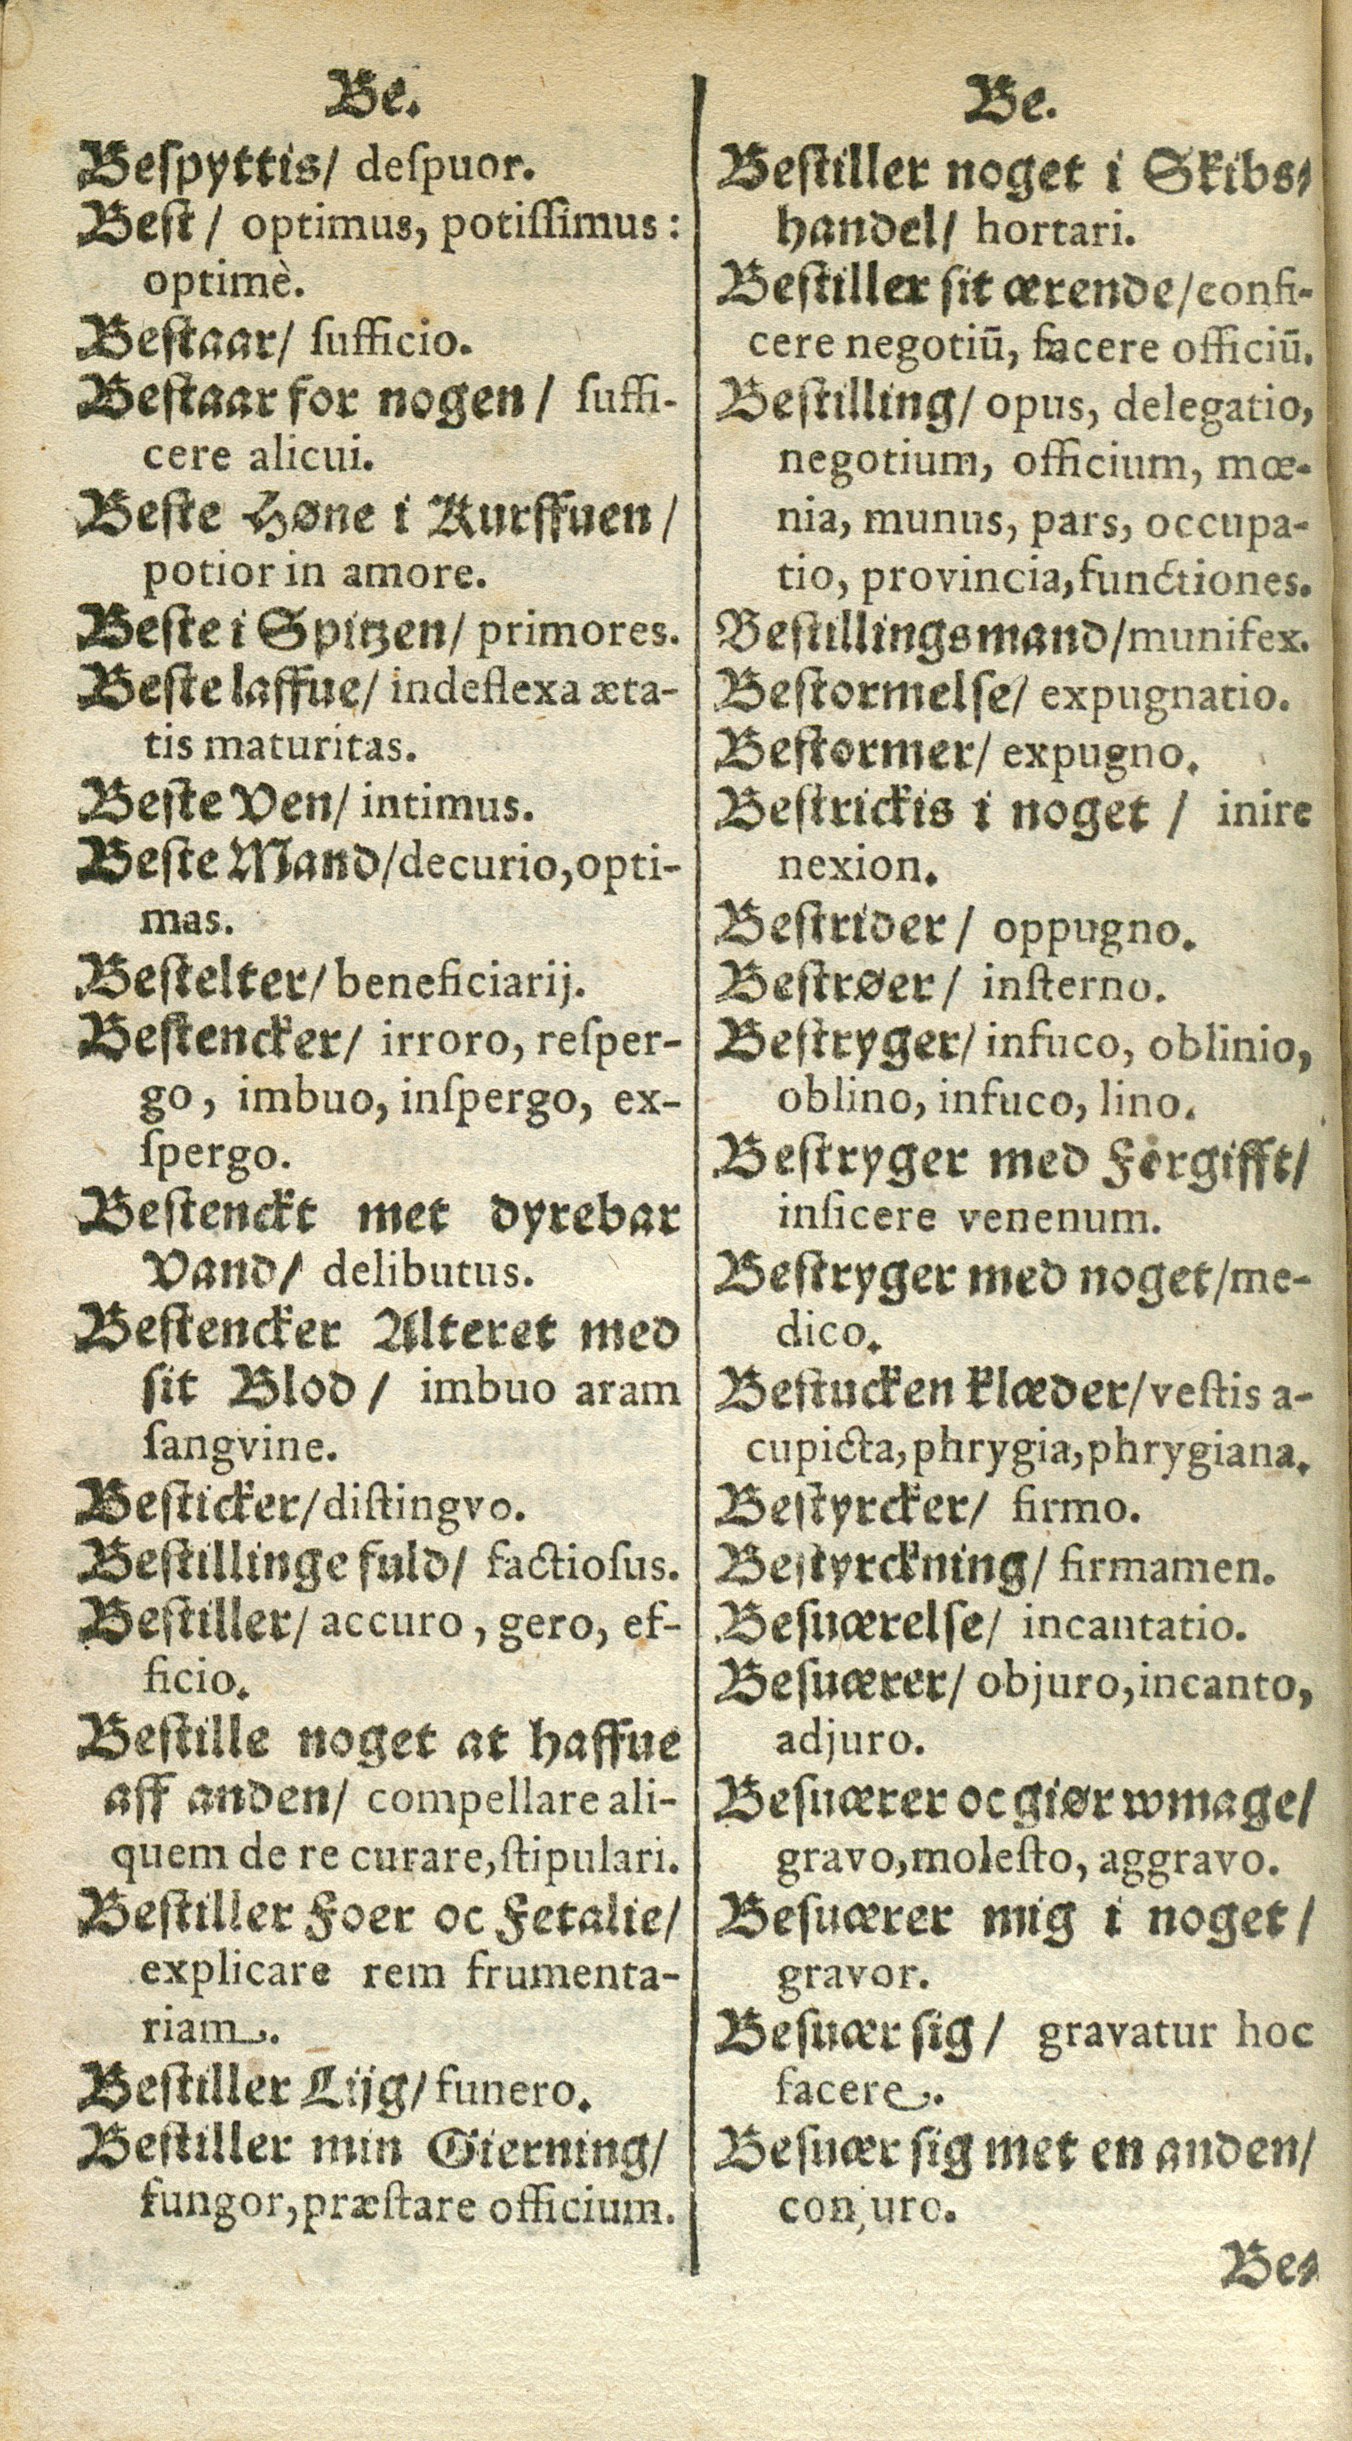 Be.
Beſpyttis/ deſpuor.
Beſt/ optimus, potiſſimus:
optimè.
Beſtaar/ ſufficio.
Beſtaar for nogen/ ſuffi-
cere alicui.
Beſte Høne i Kurffuen/
potior in amore.
Beſte i Spitzen/ primores.
Beſte laffue/ indeflexa æta-
tis maturitas.
Beſte Ven/ intimus.
Beſte Mand/decurio,opti-
mas.
Beſtelter/beneficiarij.
Beſtencker/ irroro, reſper-
go, imbuo, inſpergo, ex-
ſpergo.
Beſtenckt met dyrebar
Vand/ delibutus.
Beſtencker Alteret med
ſit Blod/ imbuo aram
ſangvine.
Beſticker/diſtingvo.
Beſtillinge fuld/ factioſus.
Beſtiller/ accuro, gero, ef-
ficio.
Beſtille noget at haffue
aff anden/ compellare ali-
quem de re curare,ſtipulari.
Beſtiller Foer oc Fetalie/
explicare rem frumenta-
riam.
Beſtiller Lijg/funero.
Beſtiller min Gierning/
fungor,præſtare officium.
Be.
Beſtiller noget i Skibs-
handel/ hortari.
Beſtiller ſit ærende/confi-
cere negotiū, facere officiū.
Beſtilling/ opus, delegatio,
negotium, officium, mœ-
nia, munus, pars, occupa-
tio, provincia,functiones.
Beſtillingsmand/munifex.
Beſtormelſe/ expugnatio.
Beſtormer/ expugno.
Beſtrickis i noget / inire
nexion.
Beſtrider/ oppugno.
Beſtrøer/ inſterno.
Beſtryger/ infuco, oblinio,
oblino, infuco, lino.
Beſtryger med Forgifft/
inficere venenum.
Beſtryger med noget/me-
dico.
Beſtucken klæder/veſtis a-
cupicta,phrygia,phrygiana.
Beſtyrcker/ firmo.
Beſtyrckning/ firmamen.
Beſuærelſe/ incantatio.
Beſuærer/ objuro,incanto,
adjuro.
Beſuærer oc giør wmage/
gravo,moleſto, aggravo.
Beſuærer mig i noget/
gravor.
Beſuær ſig/ gravatur hoc
facere.
Beſuær ſig met en anden/
conjuro.
Be-